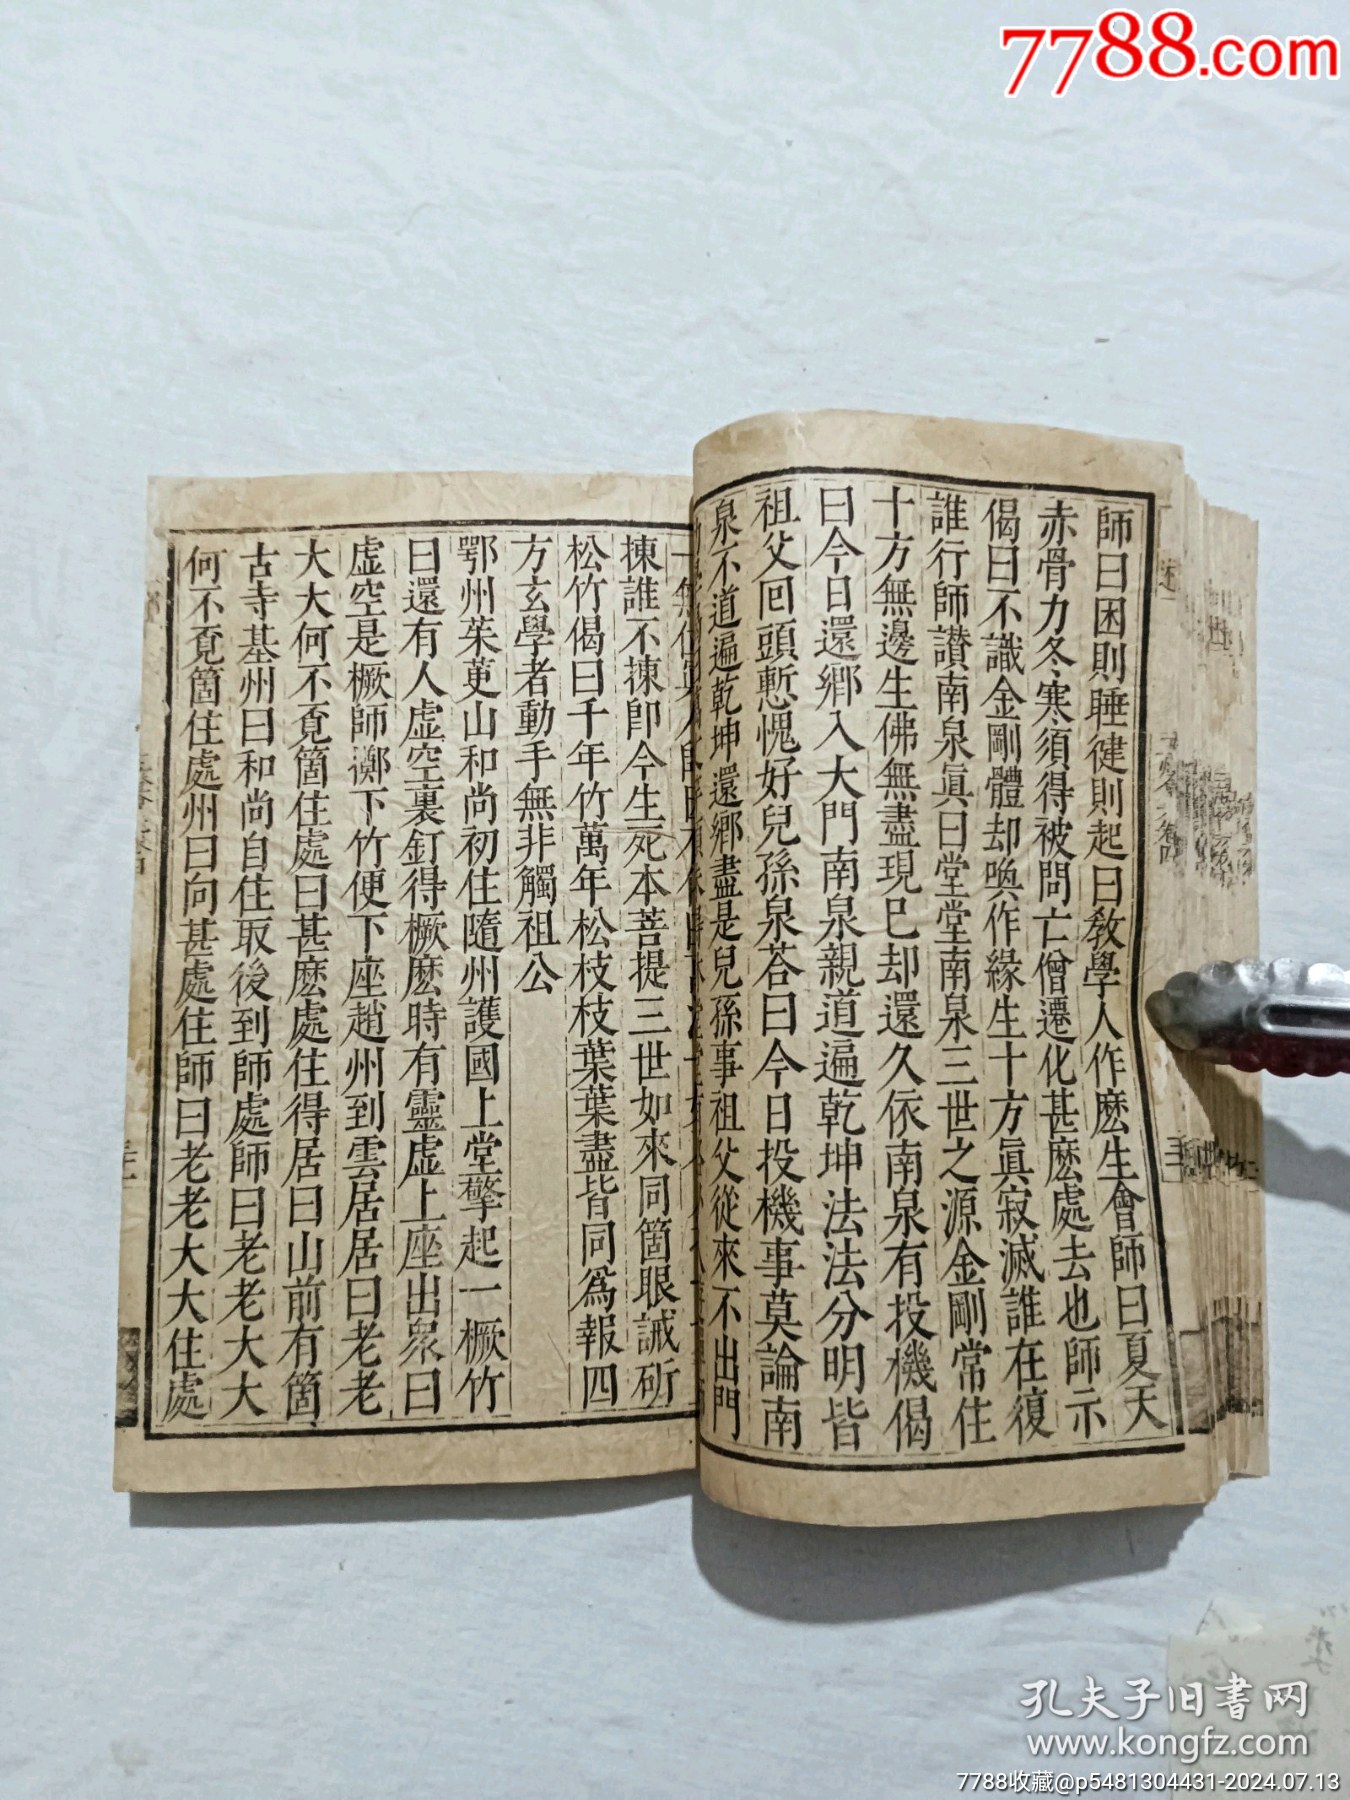 7788.com
師曰困則睡健則起曰教學人作麽生會師曰夏天
赤骨力冬寒須得被問亡僧遷化甚麽處去也師示
偈曰不識金剛體却喚作緣生十方眞寂滅誰在復
誰行師讃南泉眞曰堂堂南泉三世之源金剛常住
十方無邊生佛無盡現已却還久依南泉有投機偈
曰今日還鄉入大門南泉親道遍乾坤法法分明皆
祖父回頭慙愧好兒孫泉荅曰今日投機事莫論南
泉不道遍乾坤還鄉盡是兒孫事祖父從來不出門
揀誰不揀卽今生死本菩提三世如來同箇眼誡斫
松竹偈曰千年竹萬年松枝枝葉葉盡皆同爲報四
方玄學者動手無非觸祖公
鄂州茱萸山和尚初住隨州護國上堂擎起一橛竹
曰還有人虛空裏釘得橛麽時有靈虛上座出衆曰
虛空是橛師擲下竹便下座趙州到雲居居曰老老
大大何不覓箇住處曰甚麽處住得居曰山前有箇
古寺基州曰和尚自住取後到師處師曰老老大大
何不覓箇住處州曰向甚處住師曰老老大大住處
孔夫子旧書网
www.kongfz.com
7788收藏@p5481304431-2024.07.13